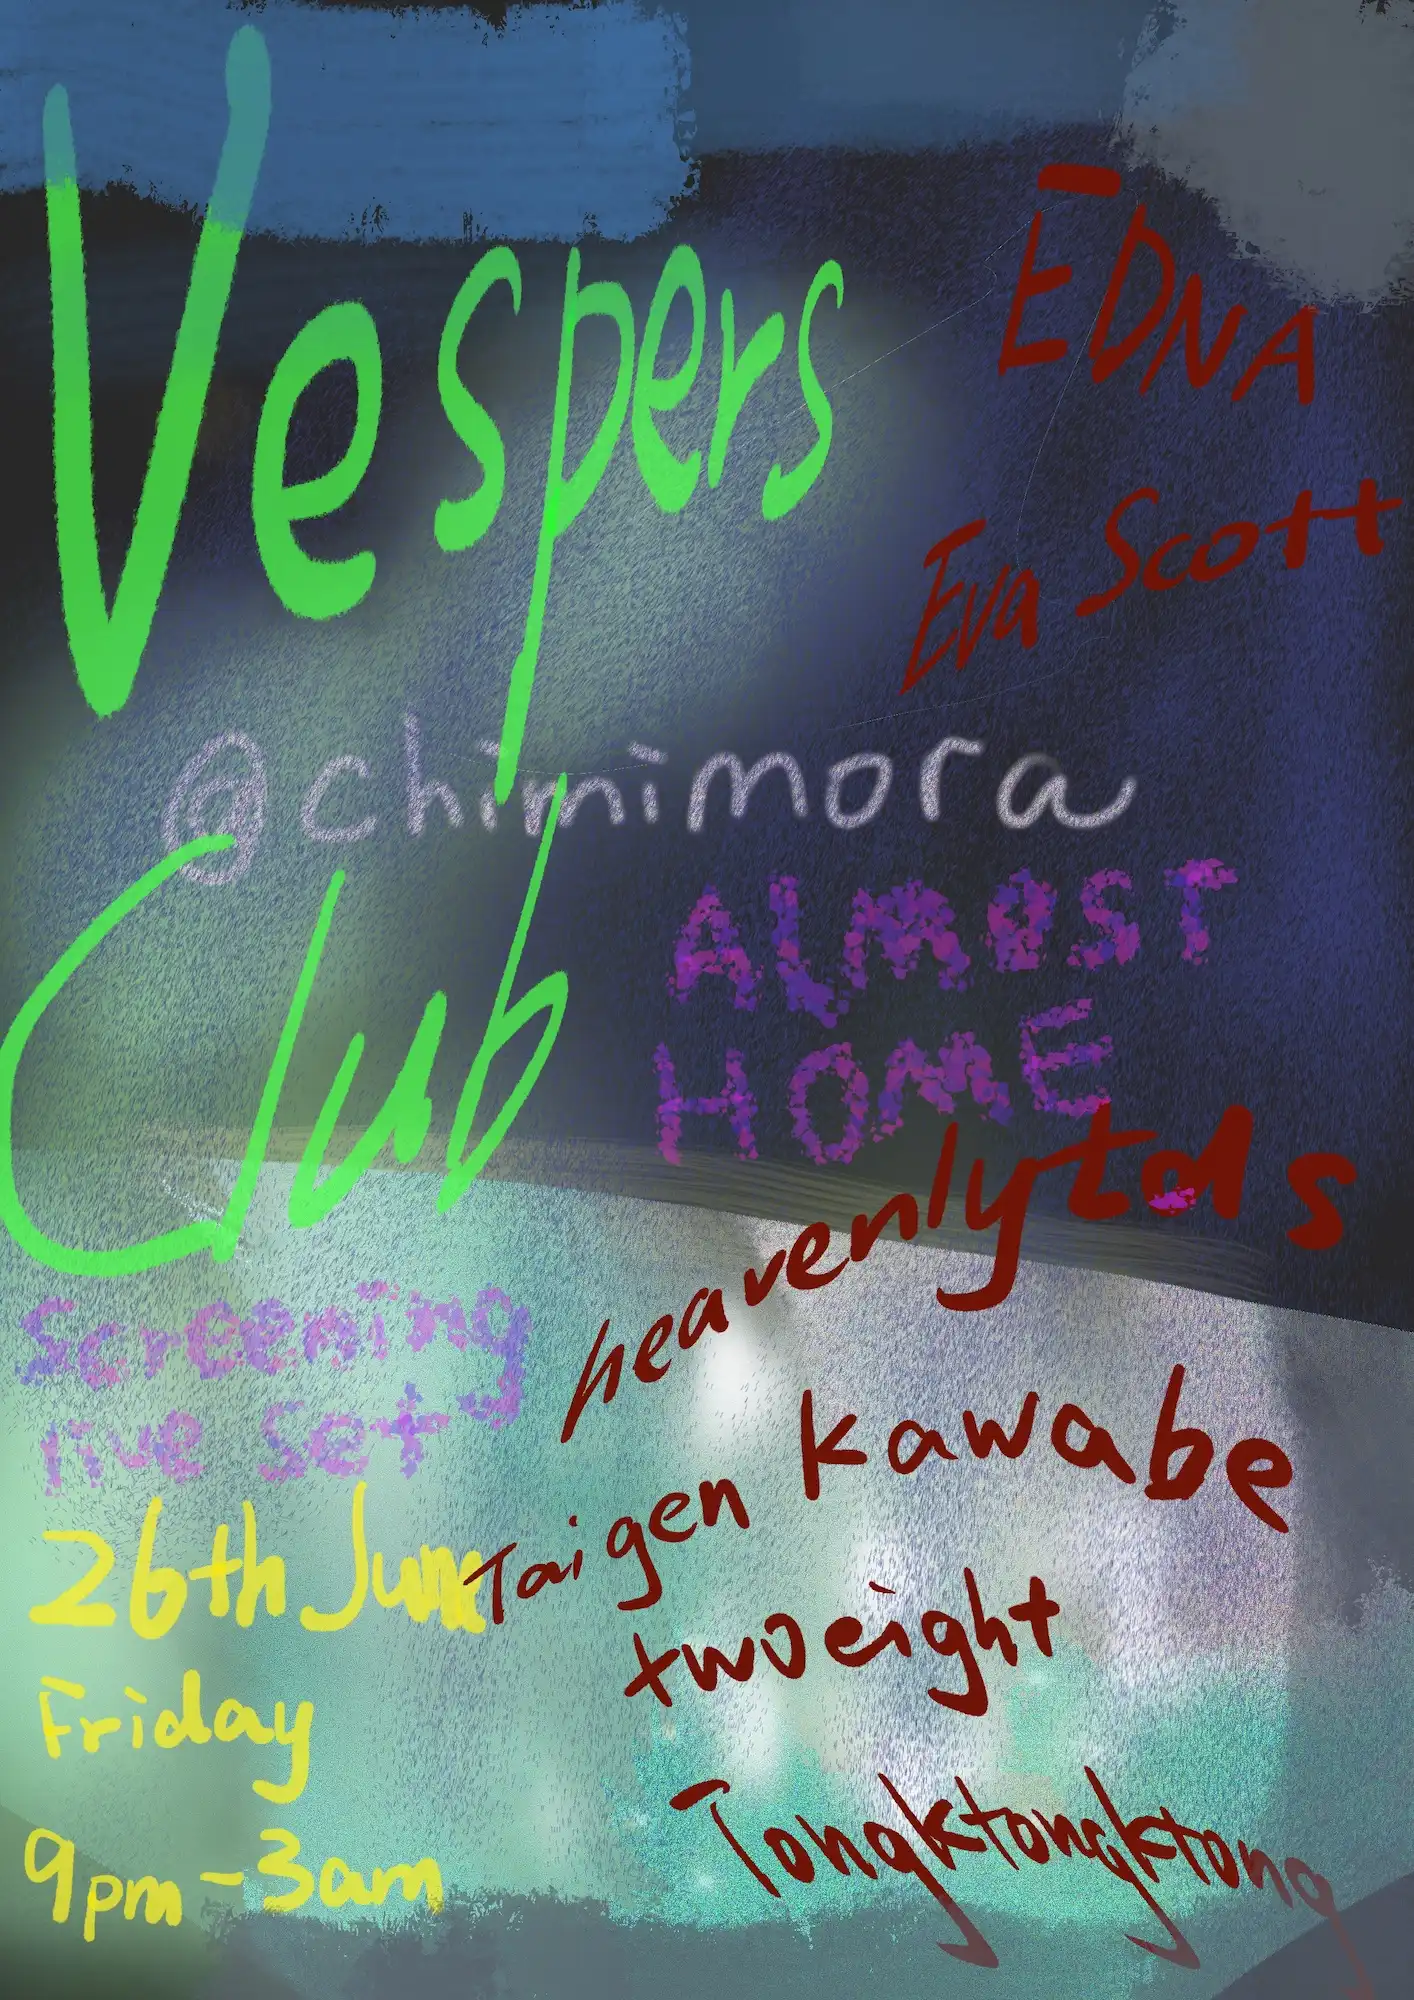 Vespers
EDNA
Eva Scott
@chimimora
Club
ALMOST
HOME
heavenlytds
Screening
live set
Taigen Kawabe
26th June
twoeight
Friday
Tongktongktong
9pm-3am